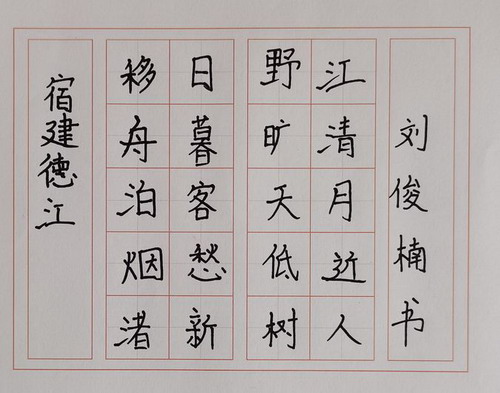 宿建德江
移舟泊烟渚
日暮客愁新
野旷天低树
江清月近人
刘俊楠书